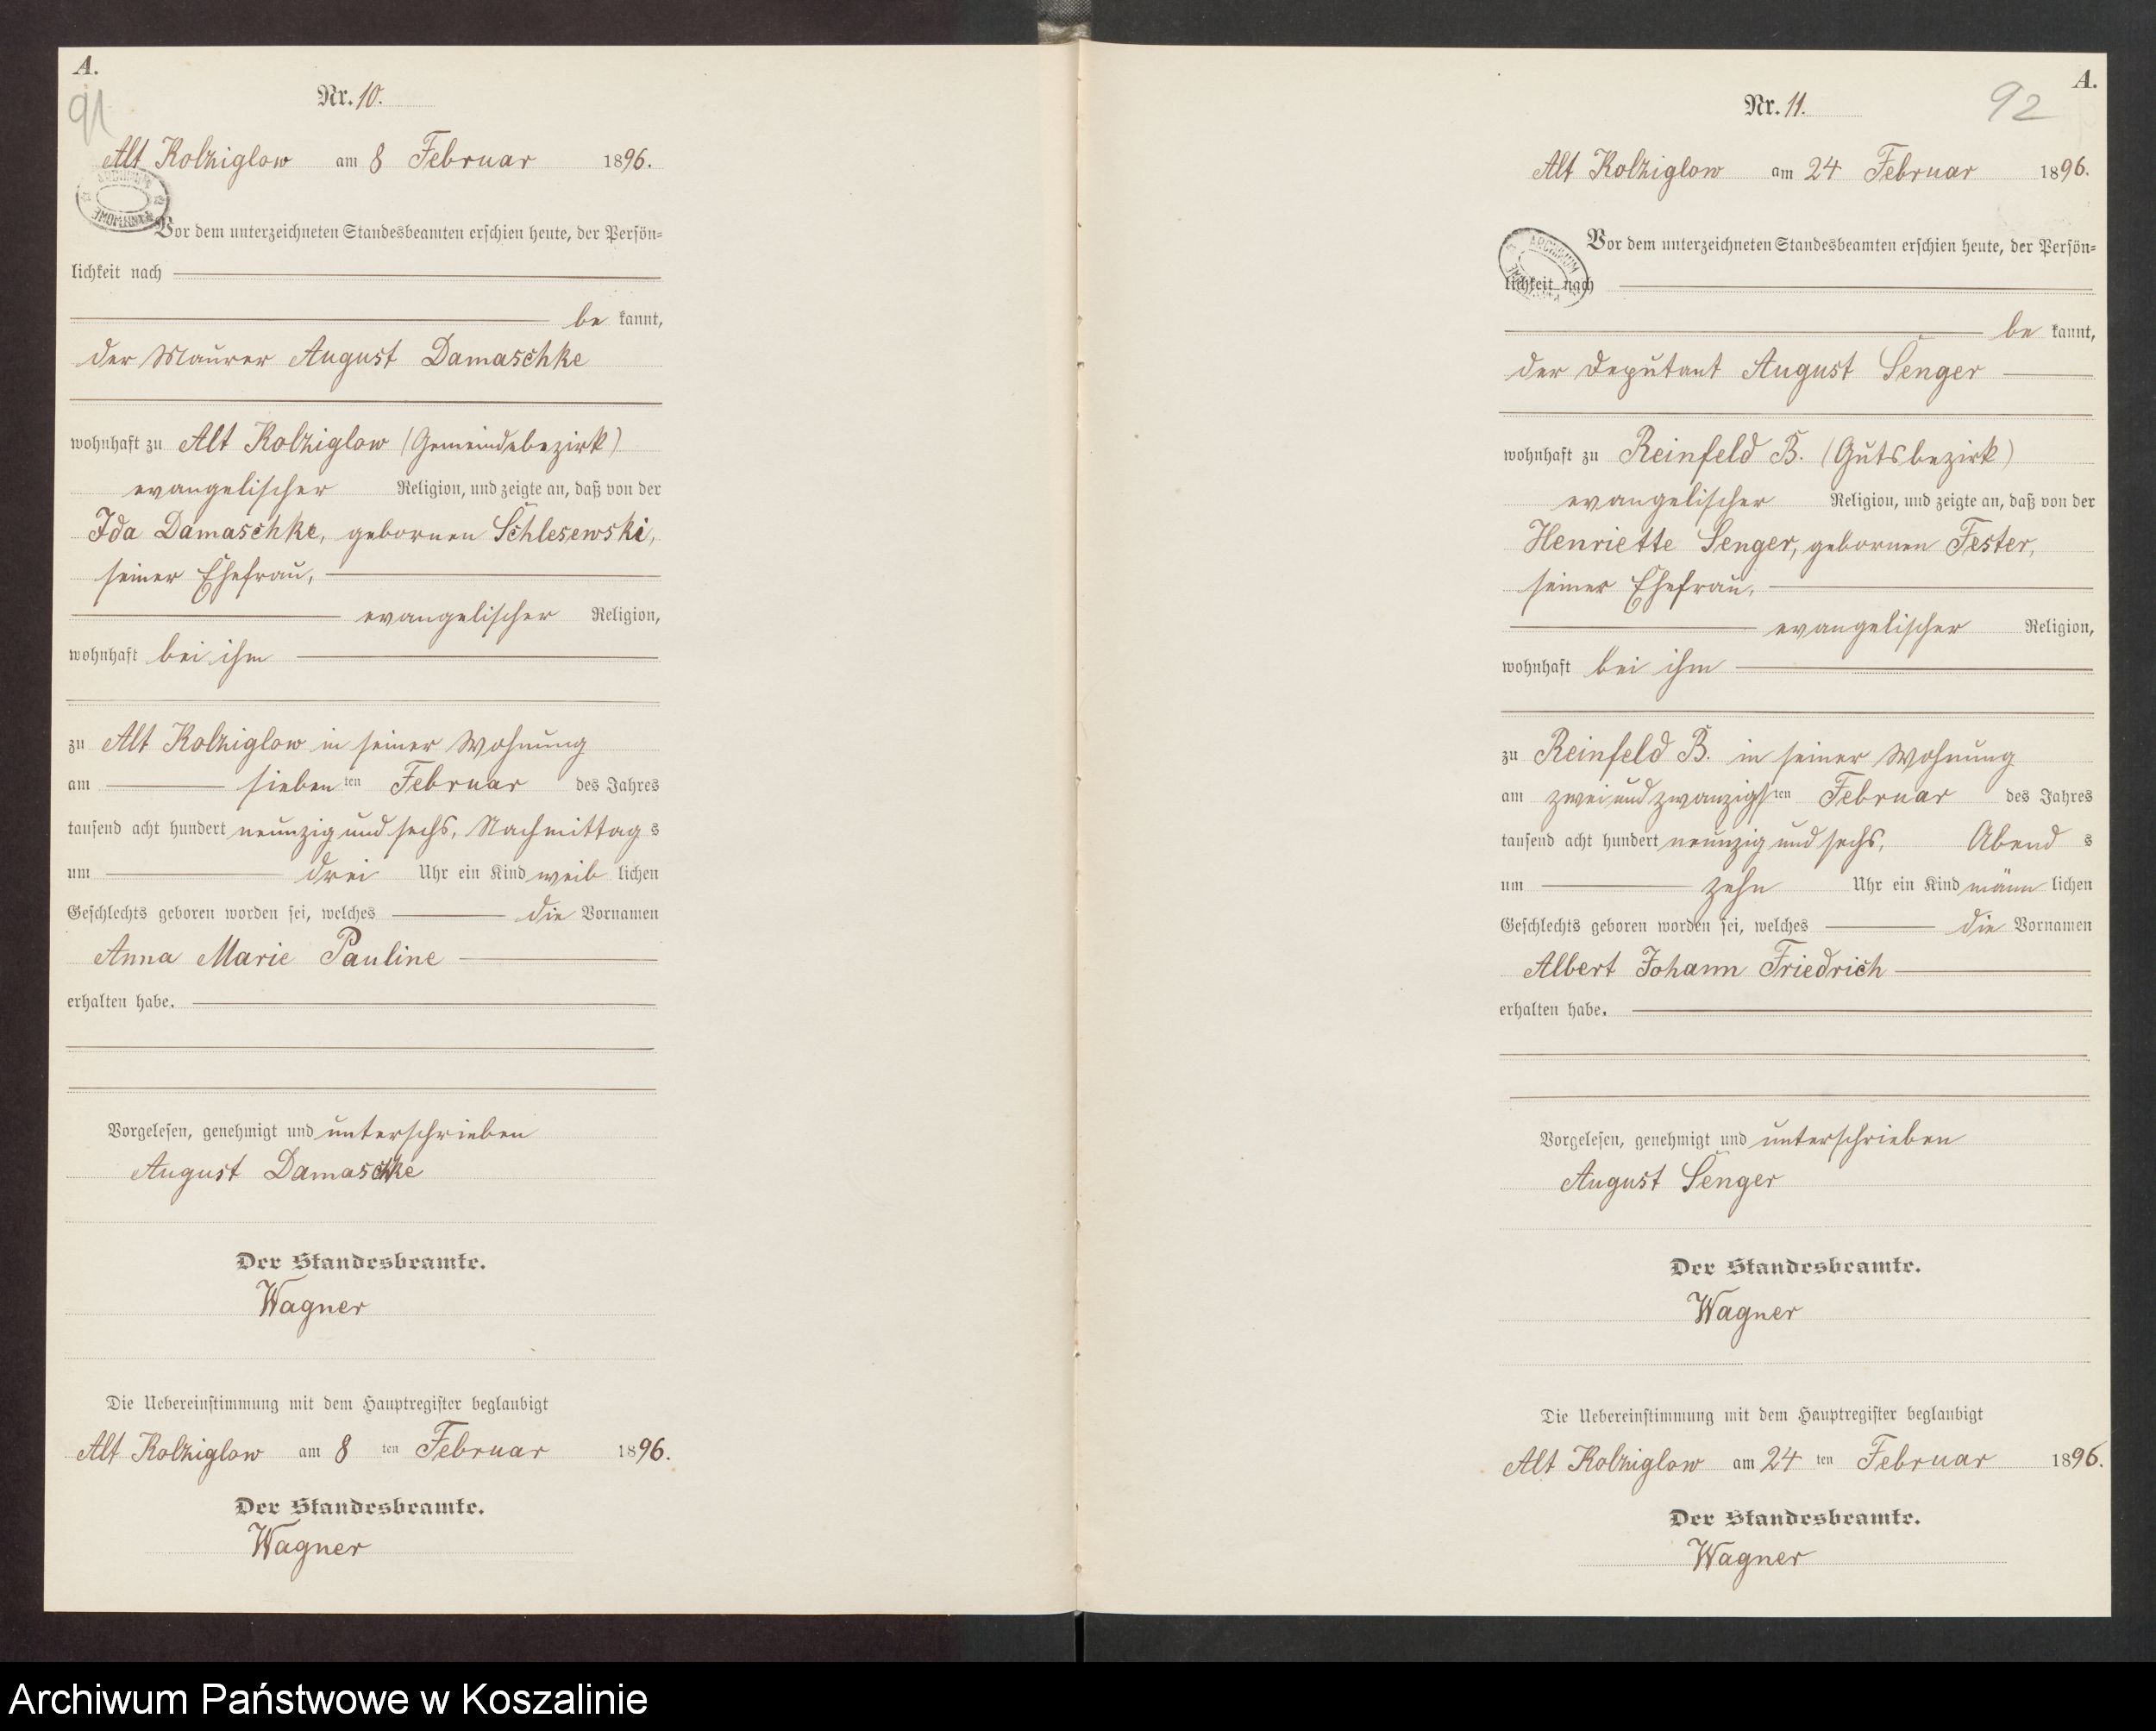 A.
91
Nr. 10.
Alt Kolziglow am 8 Februar 1896.
ARCHIWUM PAŃSTWOWE
Vor dem unterzeichneten Standesbeamten erschien heute, der Persön-
lichkeit nach
be kannt,
der Maurer August Damaschke
wohnhaft zu Alt Kolziglow (Gemeindebezirk)
evangelischer Religion, und zeigte an, daß von der
Ida Damaschke, gebornen Schlesewski,
seiner Ehefrau,
evangelischer Religion,
wohnhaft bei ihm
zu Alt Kolziglow in seiner Wohnung
am siebenten Februar des Jahres
tausend acht hundert neunzig und sechs, Nachmittags
um drei Uhr ein Kind weiblichen
Geschlechts geboren worden sei, welches die Vornamen
Anna Marie Pauline
erhalten habe.
Vorgelesen, genehmigt und unterschrieben
August Damaschke
Der Standesbeamte.
Wagner
Die Uebereinstimmung mit dem Hauptregister beglaubigt
Alt Kolziglow am 8 ten Februar 1896.
Der Standesbeamte.
Wagner
A.
92
Nr. 11.
Alt Kolziglow am 24 Februar 1896.
ARCHIWUM PAŃSTWOWE
Vor dem unterzeichneten Standesbeamten erschien heute, der Persön-
lichkeit nach
be kannt,
der Deputant August Senger
wohnhaft zu Reinfeld B. (Gutsbezirk)
evangelischer Religion, und zeigte an, daß von der
Henriette Senger, gebornen Fester,
seiner Ehefrau,
evangelischer Religion,
wohnhaft bei ihm
zu Reinfeld B. in seiner Wohnung
am zwei und zwanzigsten Februar des Jahres
tausend acht hundert neunzig und sechs, Abends
um zehn Uhr ein Kind männlichen
Geschlechts geboren worden sei, welches die Vornamen
Albert Johann Friedrich
erhalten habe.
Vorgelesen, genehmigt und unterschrieben
August Senger
Der Standesbeamte.
Wagner
Die Uebereinstimmung mit dem Hauptregister beglaubigt
Alt Kolziglow am 24 ten Februar 1896.
Der Standesbeamte.
Wagner
Archiwum Państwowe w Koszalinie